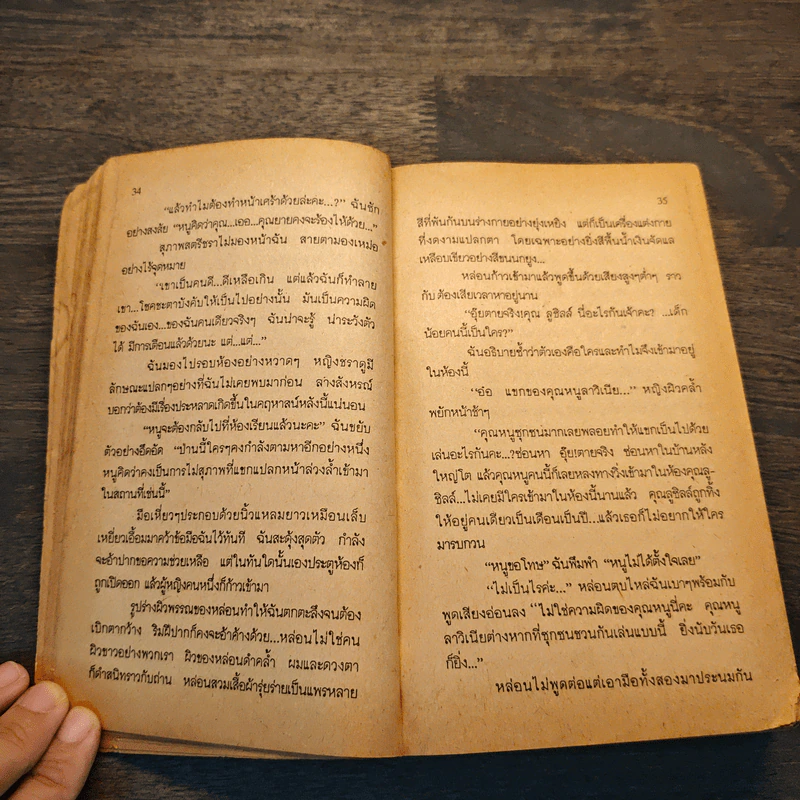 34
“แล้วทำไมต้องทำหน้าเศร้าด้วยล่ะคะ...?” ฉันซัก
อย่างสงสัย “หนูคิดว่าคุณ...เออ...คุณยายคงจะร้องไห้ด้วย...”
สุภาพสตรีชราไม่มองหน้าฉัน สายตามองเหม่อ
อย่างไร้จุดหมาย
“เขาเป็นคนดี...ดีเหลือเกิน แต่แล้วฉันก็ทำลาย
เขา...โชคชะตาบังคับให้เป็นไปอย่างนั้น มันเป็นความผิด
ของฉันเอง...ของฉันคนเดียวจริงๆ ฉันน่าจะรู้ น่าระวังตัว
ได้ มีการเตือนแล้วด้วยนะ แต่...แต่...”
ฉันมองไปรอบห้องอย่างหวาดๆ หญิงชราดูมี
ลักษณะแปลกๆอย่างที่ฉันไม่เคยพบมาก่อน ลางสังหรณ์
บอกว่าต้องมีเรื่องประหลาดเกิดขึ้นในคฤหาสน์หลังนี้แน่นอน
“หนูจะต้องกลับไปที่ห้องเรียนแล้วนะคะ” ฉันขยับ
ตัวอย่างอึดอัด “ป่านนี้ใครๆคงกำลังตามหาอีกอย่างหนึ่ง
หนูคิดว่าคงเป็นการไม่สุภาพที่แขกแปลกหน้าล่วงล้ำเข้ามา
ในสถานที่เช่นนี้”
มือเหี่ยวๆประกอบด้วยนิ้วแหลมยาวเหมือนเล็บ
เหยี่ยวเอื้อมมาคว้าข้อมือฉันไว้ทันที ฉันสะดุ้งสุดตัว กำลัง
จะอ้าปากขอความช่วยเหลือ แต่ในทันใดนั้นเองประตูห้องก็
ถูกเปิดออก แล้วผู้หญิงคนหนึ่งก็ก้าวเข้ามา
รูปร่างผิวพรรณของหล่อนทำให้ฉันตกตะลึงจนต้อง
เบิกตากว้าง ริมฝีปากก็คงจะอ้าค้างด้วย...หล่อนไม่ใช่คน
ผิวขาวอย่างพวกเรา ผิวของหล่อนดำคล้ำ ผมและดวงตา
ก็ดำสนิทราวกับถ่าน หล่อนสวมเสื้อผ้ารุ่ยร่ายเป็นแพรหลาย
35
สีที่พันกันบนร่างกายอย่างยุ่งเหยิง แต่ก็เป็นเครื่องแต่งกาย
ที่งดงามแปลกตา โดยเฉพาะอย่างยิ่งสีพื้นน้ำเงินจัดแล
เหลือบเขียวอย่างสีขนนกยูง...
หล่อนก้าวเข้ามาแล้วพูดขึ้นด้วยเสียงสูงๆต่ำๆ ราว
กับ ต้องเสียเวลาหาอยู่นาน
“อุ๊ยตายจริง!คุณ ลูซิลล์ นี่อะไรกันเจ้าคะ? ...เด็ก
น้อยคนนี้เป็นใคร?”
ฉันอธิบายซ้ำว่าตัวเองคือใครและทำไมจึงเข้ามาอยู่
ในห้องนี้
“อ๋อ แขกของคุณหนูลาวิเนีย...” หญิงผิวคล้ำ
พยักหน้าช้าๆ
“คุณหนูซุกซนมากเลยพลอยทำให้แขกเป็นไปด้วย
เล่นอะไรกันคะ...?ซ่อนหา อุ๊ย!ตายจริง ซ่อนหาในบ้านหลัง
ใหญ่โต แล้วคุณหนูคนนี้ก็เลยหลงทางวิ่งเข้ามาในห้องคุณลู-
ซิลล์...ไม่เคยมีใครเข้ามาในห้องนี้นานแล้ว คุณลูซิลล์ถูกทิ้ง
ให้อยู่คนเดียวเป็นเดือนเป็นปี...แล้วเธอก็ไม่อยากให้ใคร
มารบกวน
“หนูขอโทษ” ฉันพึมพำ “หนูไม่ได้ตั้งใจเลย”
“ไม่เป็นไรค่ะ...” หล่อนตบไหล่ฉันเบาๆพร้อมกับ
พูดเสียงอ่อนลง “ไม่ใช่ความผิดของคุณหนูนี่คะ คุณหนู
ลาวิเนียต่างหากที่ซุกซนชวนกันเล่นแบบนี้ ยิ่งนับวันเธอ
ก็ยิ่ง...”
หล่อนไม่พูดต่อแต่เอามือทั้งสองมาประนมกัน